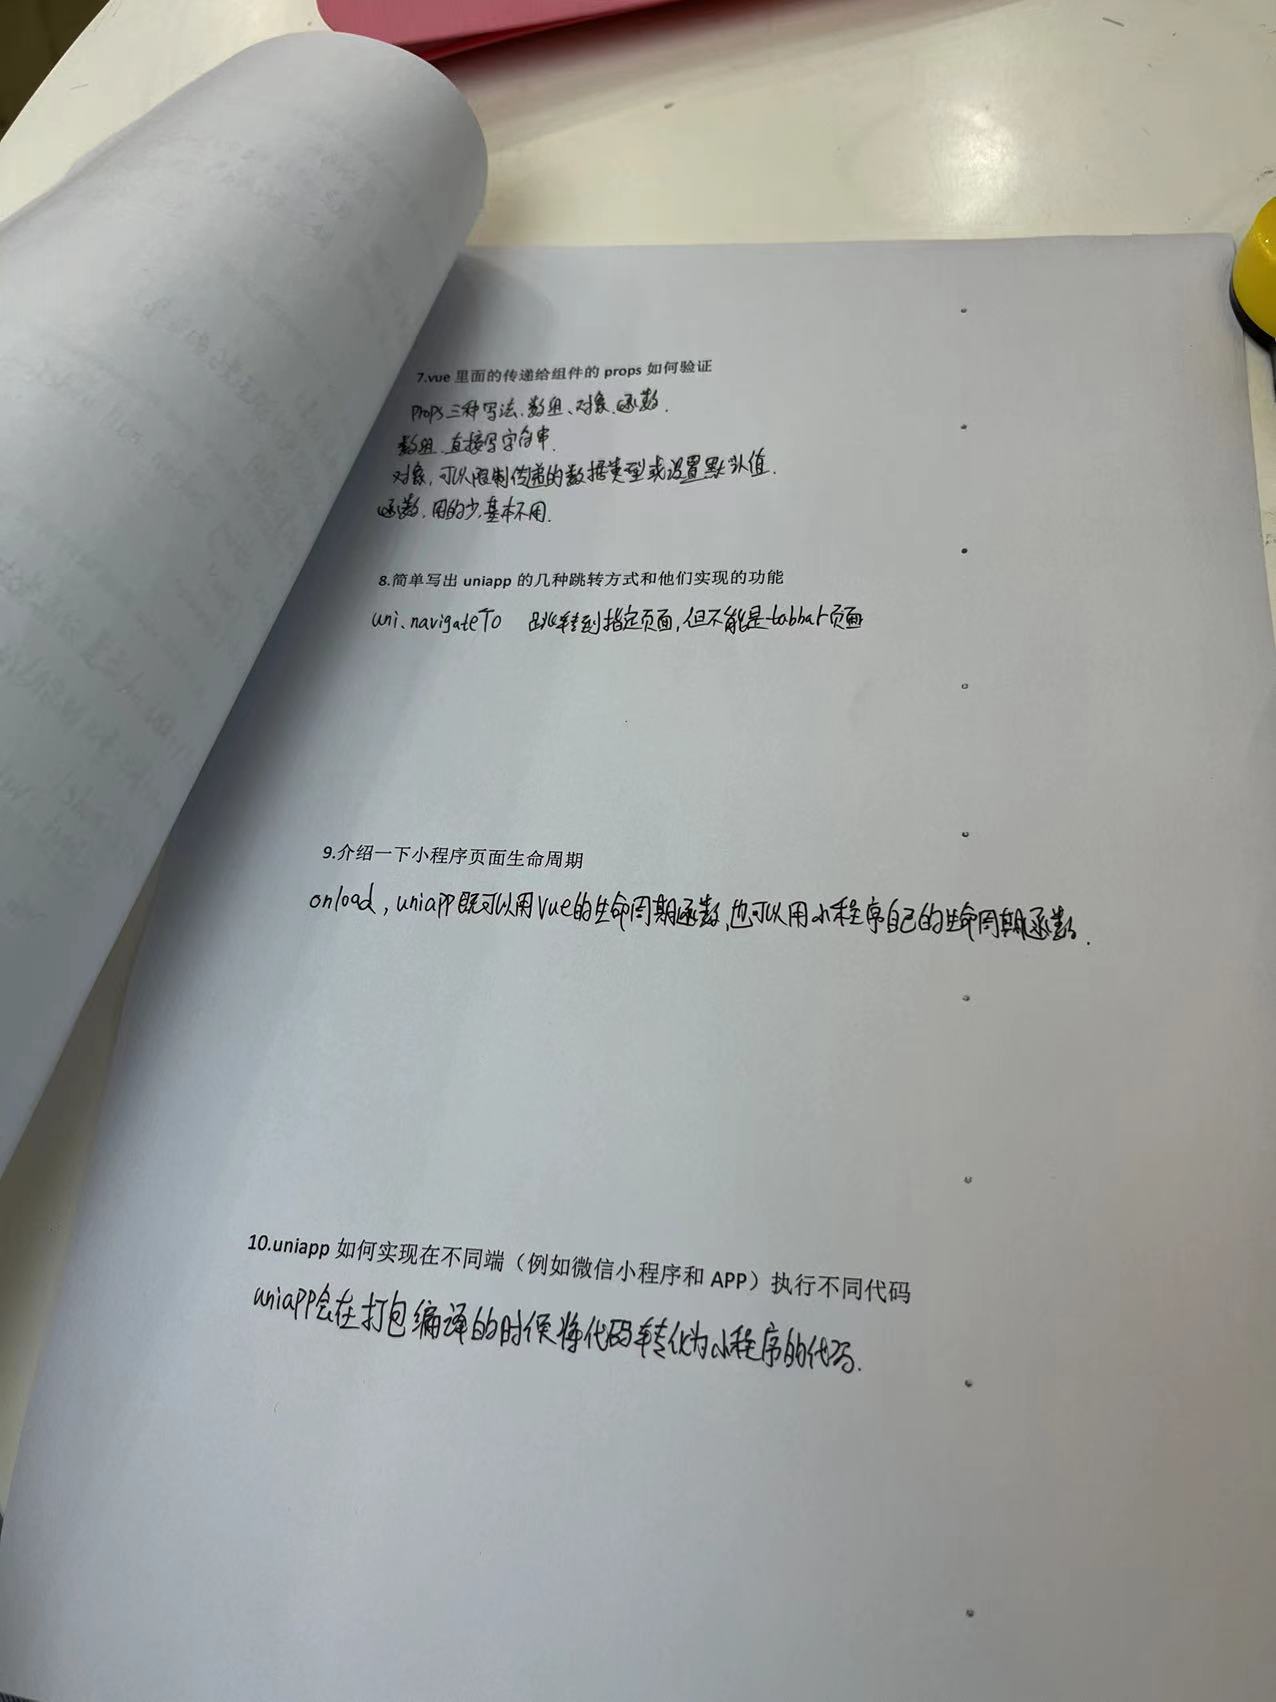 7.vue 里面的传递给组件的 props 如何验证
props三种写法、数组、对象、函数.
数组、直接写字符串.
对象,可以限制传递的数据类型或设置默认值.
函数,用的少,基本不用.
8.简单写出 uniapp 的几种跳转方式和他们实现的功能
uni.navigateTo 跳转到指定页面,但不能是tabbar页面
9.介绍一下小程序页面生命周期
onload,uniapp既可以用vue的生命周期函数,也可以用小程序自己的生命周期函数.
10.uniapp 如何实现在不同端（例如微信小程序和 APP）执行不同代码
uniapp会在打包编译的时候将代码转化为小程序的代码.